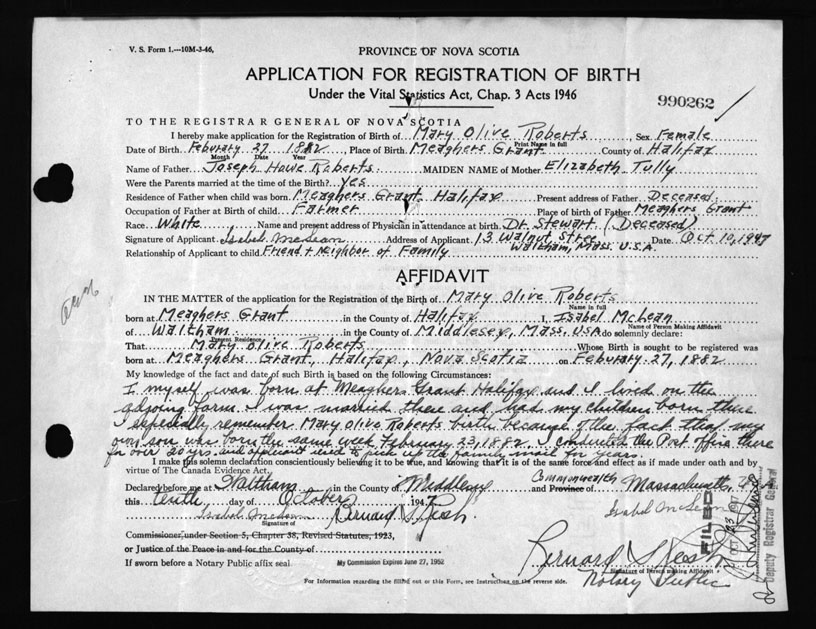 V. S. Form 1.—10M-3-46,
PROVINCE OF NOVA SCOTIA
APPLICATION FOR REGISTRATION OF BIRTH
Under the Vital Statistics Act, Chap. 3 Acts 1946
990262
TO THE REGISTRAR GENERAL OF NOVA SCOTIA
I hereby make application for the Registration of Birth of Mary Olive Roberts Sex Female
Print Name in full
Date of Birth Feburary 27 1882 Place of Birth Meaghers Grant County of Halifax
Month Date Year
Name of Father Joseph Howe Roberts MAIDEN NAME of Mother Elizabeth Tully
Were the Parents married at the time of the Birth? yes
Residence of Father when child was born Meaghers Grant Halifax Present address of Father Deceased
Occupation of Father at Birth of child Farmer Place of birth of Father Meaghers Grant
Race White Name and present address of Physician in attendance at birth Dr. Stewart (Deceased)
Signature of Applicant Isabel McLean Address of Applicant 13 Walnut Street Date Oct. 10, 1947
Waltham, Mass. U.S.A.
Relationship of Applicant to child Friend & Neighbor of Family
AFFIDAVIT
IN THE MATTER of the application for the Registration of the Birth of Mary Olive Roberts
Name in full
born at Meaghers Grant in the County of Halifax I, Isabel McLean
Name of Person Making Affidavit
of Waltham in the County of Middlesex, Mass. USA do solemnly declare:
Present Residence
That Mary Olive Roberts Whose Birth is sought to be registered was
born at Meaghers Grant, Halifax, Nova Scotia on Feburary 27, 1882
My knowledge of the fact and date of such Birth is based on the following Circumstances:
I myself was born at Meaghers Grant Halifax and I lived on the
adjoing farm. I was married there and had my children born there
I especially remember Mary Olive Roberts birth because of the fact that my
own son was born the same week February 23, 1882. I conducted the Post office there
for over 20 yrs. and applicant used to pick up the family mail for years.
I make this solemn declaration conscientiously believing it to be true, and knowing that it is of the same force and effect as if made under oath and by
virtue of The Canada Evidence Act.
Declared before me at Waltham in the County of Middlesex Commonwealth and Province of Massachusetts
this tenth day of October 1947
Isabel McLean
Signature of
Isabel McLean
Commissioner under Section 5, Chapter 38, Revised Statutes, 1923,
or Justice of the Peace in and for the County of
Signature of Person making Affidavit
If sworn before a Notary Public affix seal My Commission Expires June 27, 1952
Notary Public
For Information regarding the filling out of this Form, see Instructions on the reverse side.
FILED
Deputy Registrar General